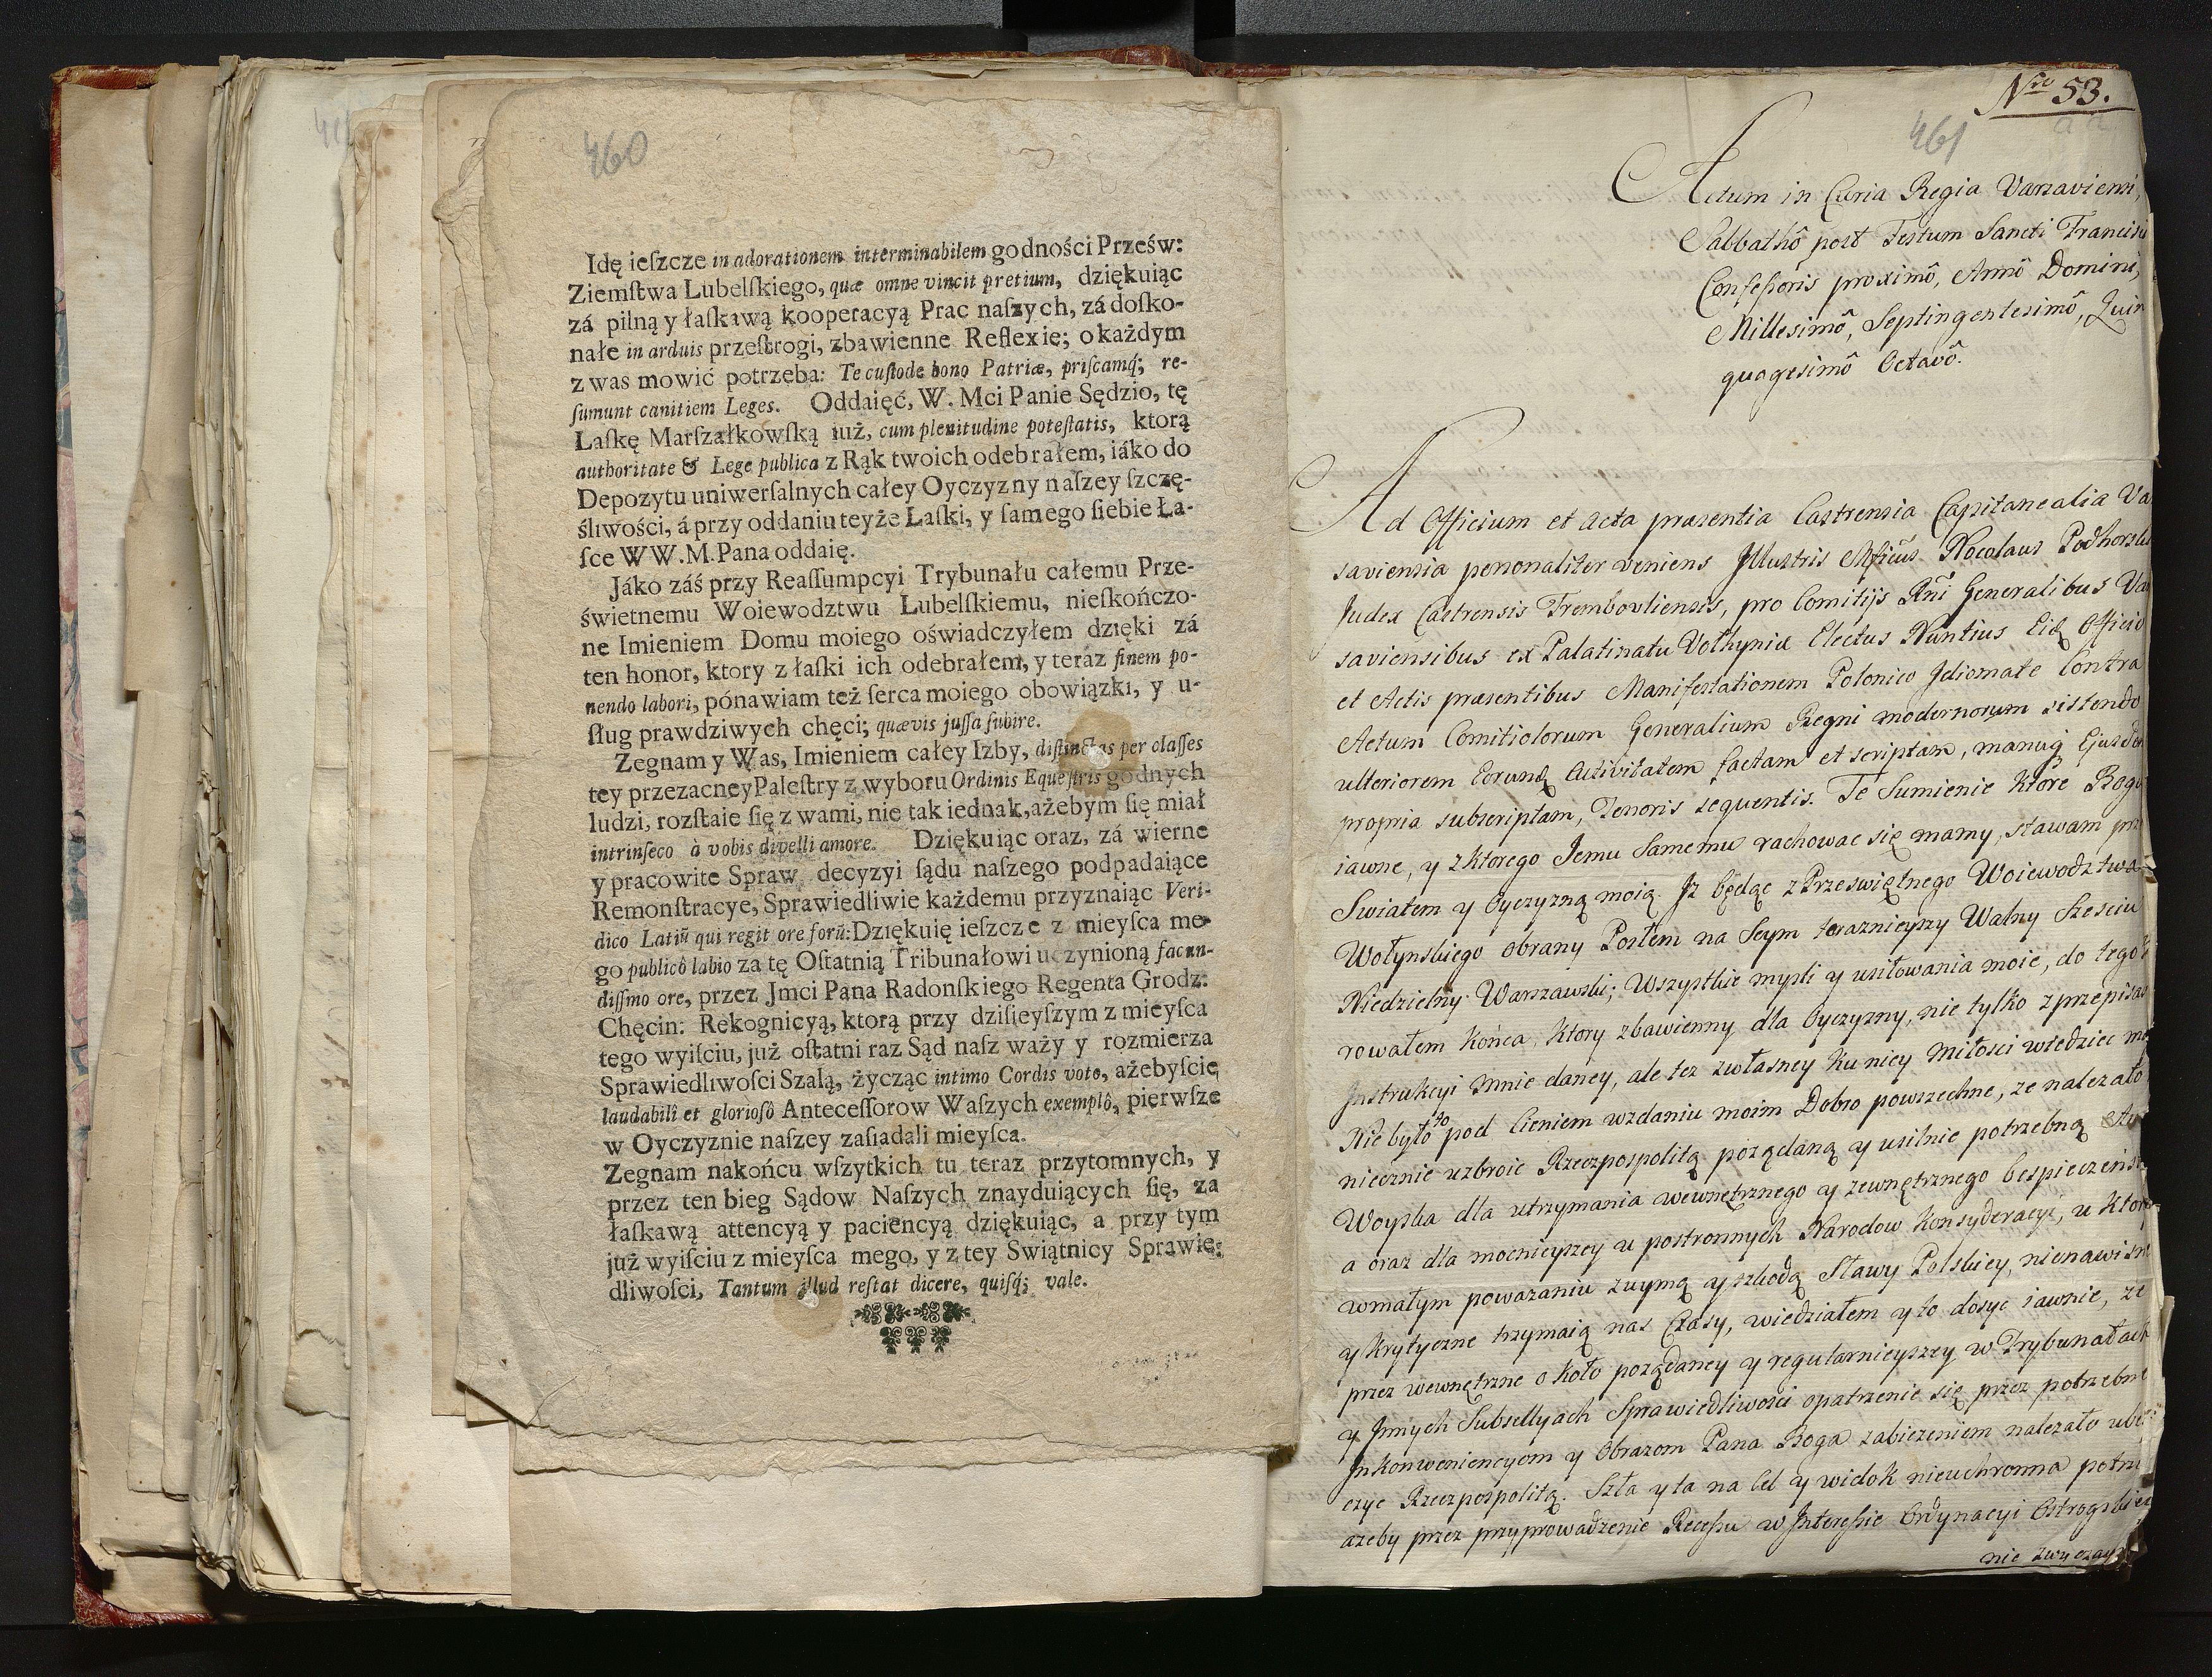 460
Idę ieſzcze in adorationem interminabilem godności Prześw:
Ziemſtwa Lubelſkiego, quæ omne vincit pretium, dziękuiąc
zá pilną y łaſkawą kooperacyą Prac naſzych, zá doſko-
nałe in arduis przeſtrogi, zbawienne Reflexie; o każdym
z was mowić potrzeba: Te cuſtode bono Patriæ, priſcamq́; re-
ſumunt canitiem Leges. Oddaięć, W. Mci Panie Sędzio, tę
Laſkę Marſzałkowſką iuż, cum plenitudine poteſtatis, ktorą
authoritate & Lege publica z Rąk twoich odebrałem, iáko do
Depozytu uniwerſalnych całey Oyczyzny naſzey ſzczę-
śliwości, á przy oddaniu teyże Laſki, y ſamego ſiebie Ła-
ſce WW.M.Pana oddaię.
Jáko záś przy Reaſſumpcyi Trybunału całemu Prze-
świetnemu Woiewodztwu Lubelſkiemu, nieſkończo-
ne Imieniem Domu moiego oświadczyłem dzięki zá
ten honor, ktory z łaſki ich odebrałem, y teráz finem po-
nendo labori, pónawiam też ſerca moiego obowiązki, y u-
ſług prawdziwych chęci; quævis juſſa ſubire.
Zegnam y Was, Imieniem całey Izby, diſtinctas per claſſes
tey przezacney Paleſtry z wyboru Ordinis Equeſtris godnych
ludzi, rozſtaie ſię z wami, nie tak iednak, ażebym ſię miał
intrinſeco à vobis divelli amore. Dziękuiąc oraz, zá wierne
y pracowite Spraw, decyzyi ſądu naſzego podpadaiące
Remonſtracye, Sprawiedliwie każdemu przyznaiąc Veri-
dico Latiū qui regit ore forū: Dziękuię ieſzcze z mieyſca me-
go publicô labio za tę Oſtatnią Tribunałowi uczynioną facun-
diſſmo ore, przez Jmci Pana Radonſkiego Regenta Grodz:
Chęcin: Rekognicyą, ktorą przy dziſieyſzym z mieyſca
tego wyiſciu, już oſtatni raz Sąd naſz waży y rozmierza
Sprawiedliwoſci Szalą, życząc intimo Cordis voto, ażebyſcie
laudabilî et glorioſô Anteceſſorow Waſzych exemplô, pierwſze
w Oyczyznie naſzey zaſiadali mieyſca.
Zegnam nakońcu wſzytkich tu teraz przytomnych, y
przez ten bieg Sądow Naſzych znayduiących ſię, za
łaſkawą attencyą y paciencyą dziękuiąc, a przy tym
już wyiſciu z mieyſca mego, y z tey Swiątnicy Sprawie-
dliwoſci, Tantum illud reſtat dicere, quiſq́; vale.
Nro 53.
461
Actum in Curia Regia Varsaviensi,
Sabbathô post Festum Sancti Francisi
Confeſsoris proximô, Annô Domini,
Millesimô, Septingentesimô, Quin
quagesimô Octavô.
Ad Officium et Acta præsentia Castrensia Capitanealia Va
saviensia personaliter veniens Jllustris Mficus Nocolaus Podhorski
Judex Castrensis Trembovliensis, pro Comitijs Rñi Generalibus Va
saviensibus ex Palatinatu Volhyniæ Electus Nuntius Eidq Officio
et Actis præsentibus Manifestationem Polonico Jdiomate Contra
Actum Comitiolorum Generalium Regni modernorum sistendo
ulteriorem Eorundq Activitatem factam et scriptam, manuq́ Ejusdem
propria subscriptam, Tenoris sequentis. Te Sumienie ktore Bogu
iawne, y z ktorego Jemu Samemu rachowac się mamy, stawam prz
Swiatem y Oyczyzną moią. Jz będąc z Przeswiętnego Woiewodztwa
Wołynskiego obrany Posłem na Seym terazniejszy Walny Szesciu
Niedzielny Warszawski; Wszystkie mysli y usiłowania moie, do tego
rowałem konca, ktory zbawienny dla Oyczyzny, nie tylko z przepisan
Jnstrukcyi mnie daney, ale tez z własney ku niey miłosci wiedziec mo
Nie było to pod Cieniem w zdaniu moim Dobro powszechne, ze nalezało
niecznie uzbroic Rzeczpospolitą poządaną y usilnie potrzebną Au
Woyska dla utrzymania wewnętrznego y zewnętrznego bespieczenst
a oraz dla mocnieyszey u postronnych Narodow konsyderacyi, u ktor
w małym powazaniu z uymą y szkodą Sławy Polskiey, nienawisne
y krytyczne trzymaią nas Czasy, wiedziałem y to dosyc iawnie, ze
przez wewnętrzne około poządaney y regularnieyszey w Trybunałach
y Jnnych Subsellyach Sprawiedliwosci opatrzenie się przez potrzebne
Jnkonweniencyom y Obrazom Pana Boga zabiezeniem nalezało ube
czyc Rzeczpospolitą. Szła y ta na Cel y widok nieuchronna potrz
azeby przez przyprowadzenie Receſsu w Jntereſsie Ordynacyi Ostrogskie
nie zwyczay